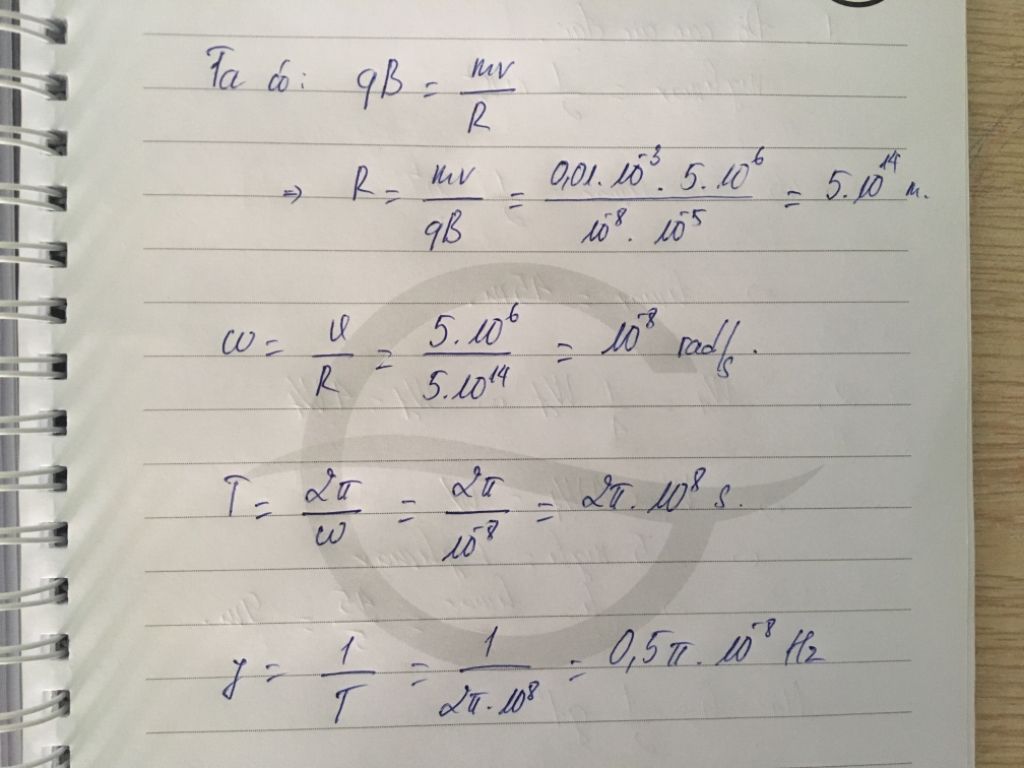 Ta có: qB = mv/R
⇒ R = mv/qB = 0,01.10⁻³. 5.10⁶/10⁻⁸. 10⁻⁵ = 5.10¹⁴ m.
ω = v/R = 5.10⁶/5.10¹⁴ = 10⁻⁸ rad/s.
T = 2π/ω = 2π/10⁻⁸ = 2π. 10⁸ s.
f = 1/T = 1/2π.10⁸ = 0,5π. 10⁻⁸ Hz